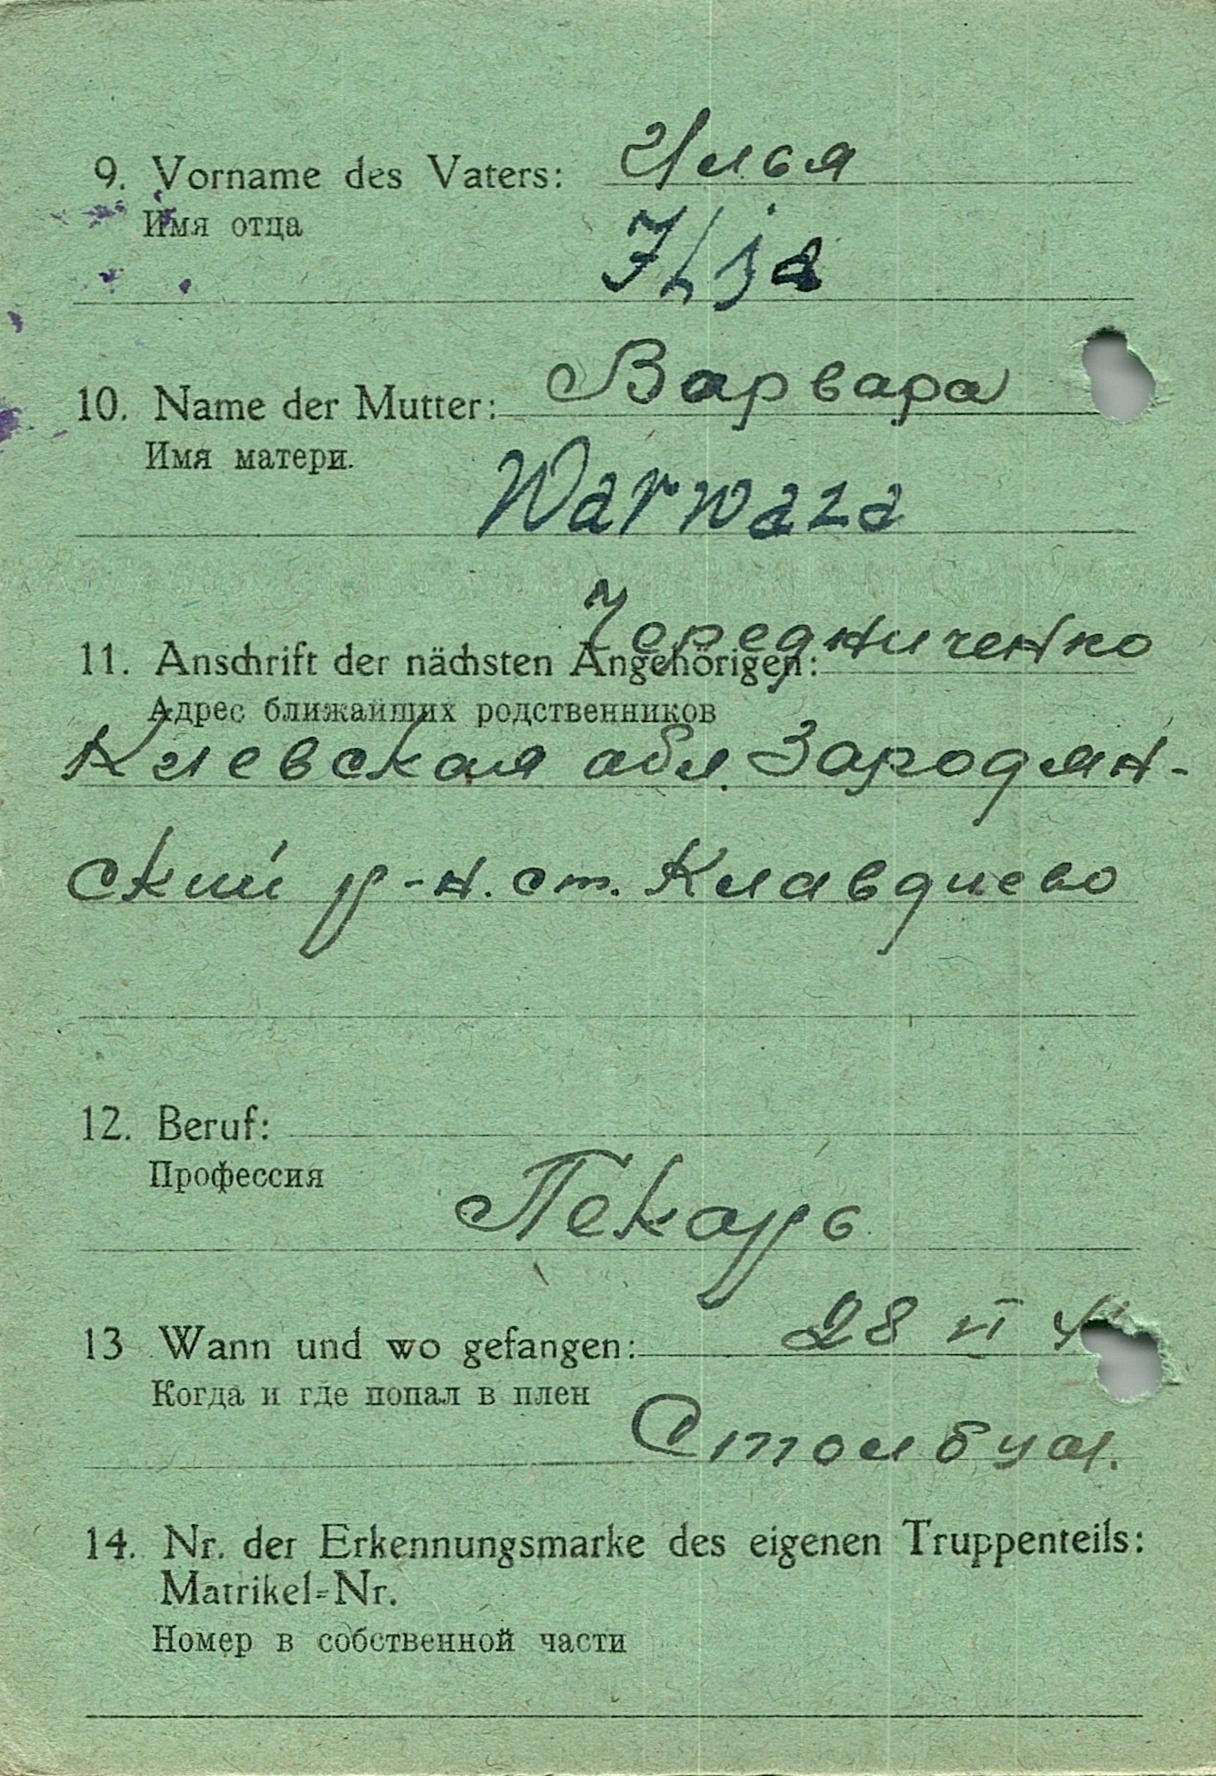 9. Vorname des Vaters: Илья
Имя отца
Ilja
10. Name der Mutter: Варвара
Имя матери.
Warwara
Чередниченко
11. Anschrift der nächsten Angehörigen:
Адрес ближайших родственников
Киевская обл. Зародян-
ский р-н. ст. Клавдиево
12. Beruf:
Профессия
Пекарь
13 Wann und wo gefangen: 28 VI
Когда и где попал в плен
14. Nr. der Erkennungsmarke des eigenen Truppenteils:
Matrikel-Nr.
Номер в собственной части